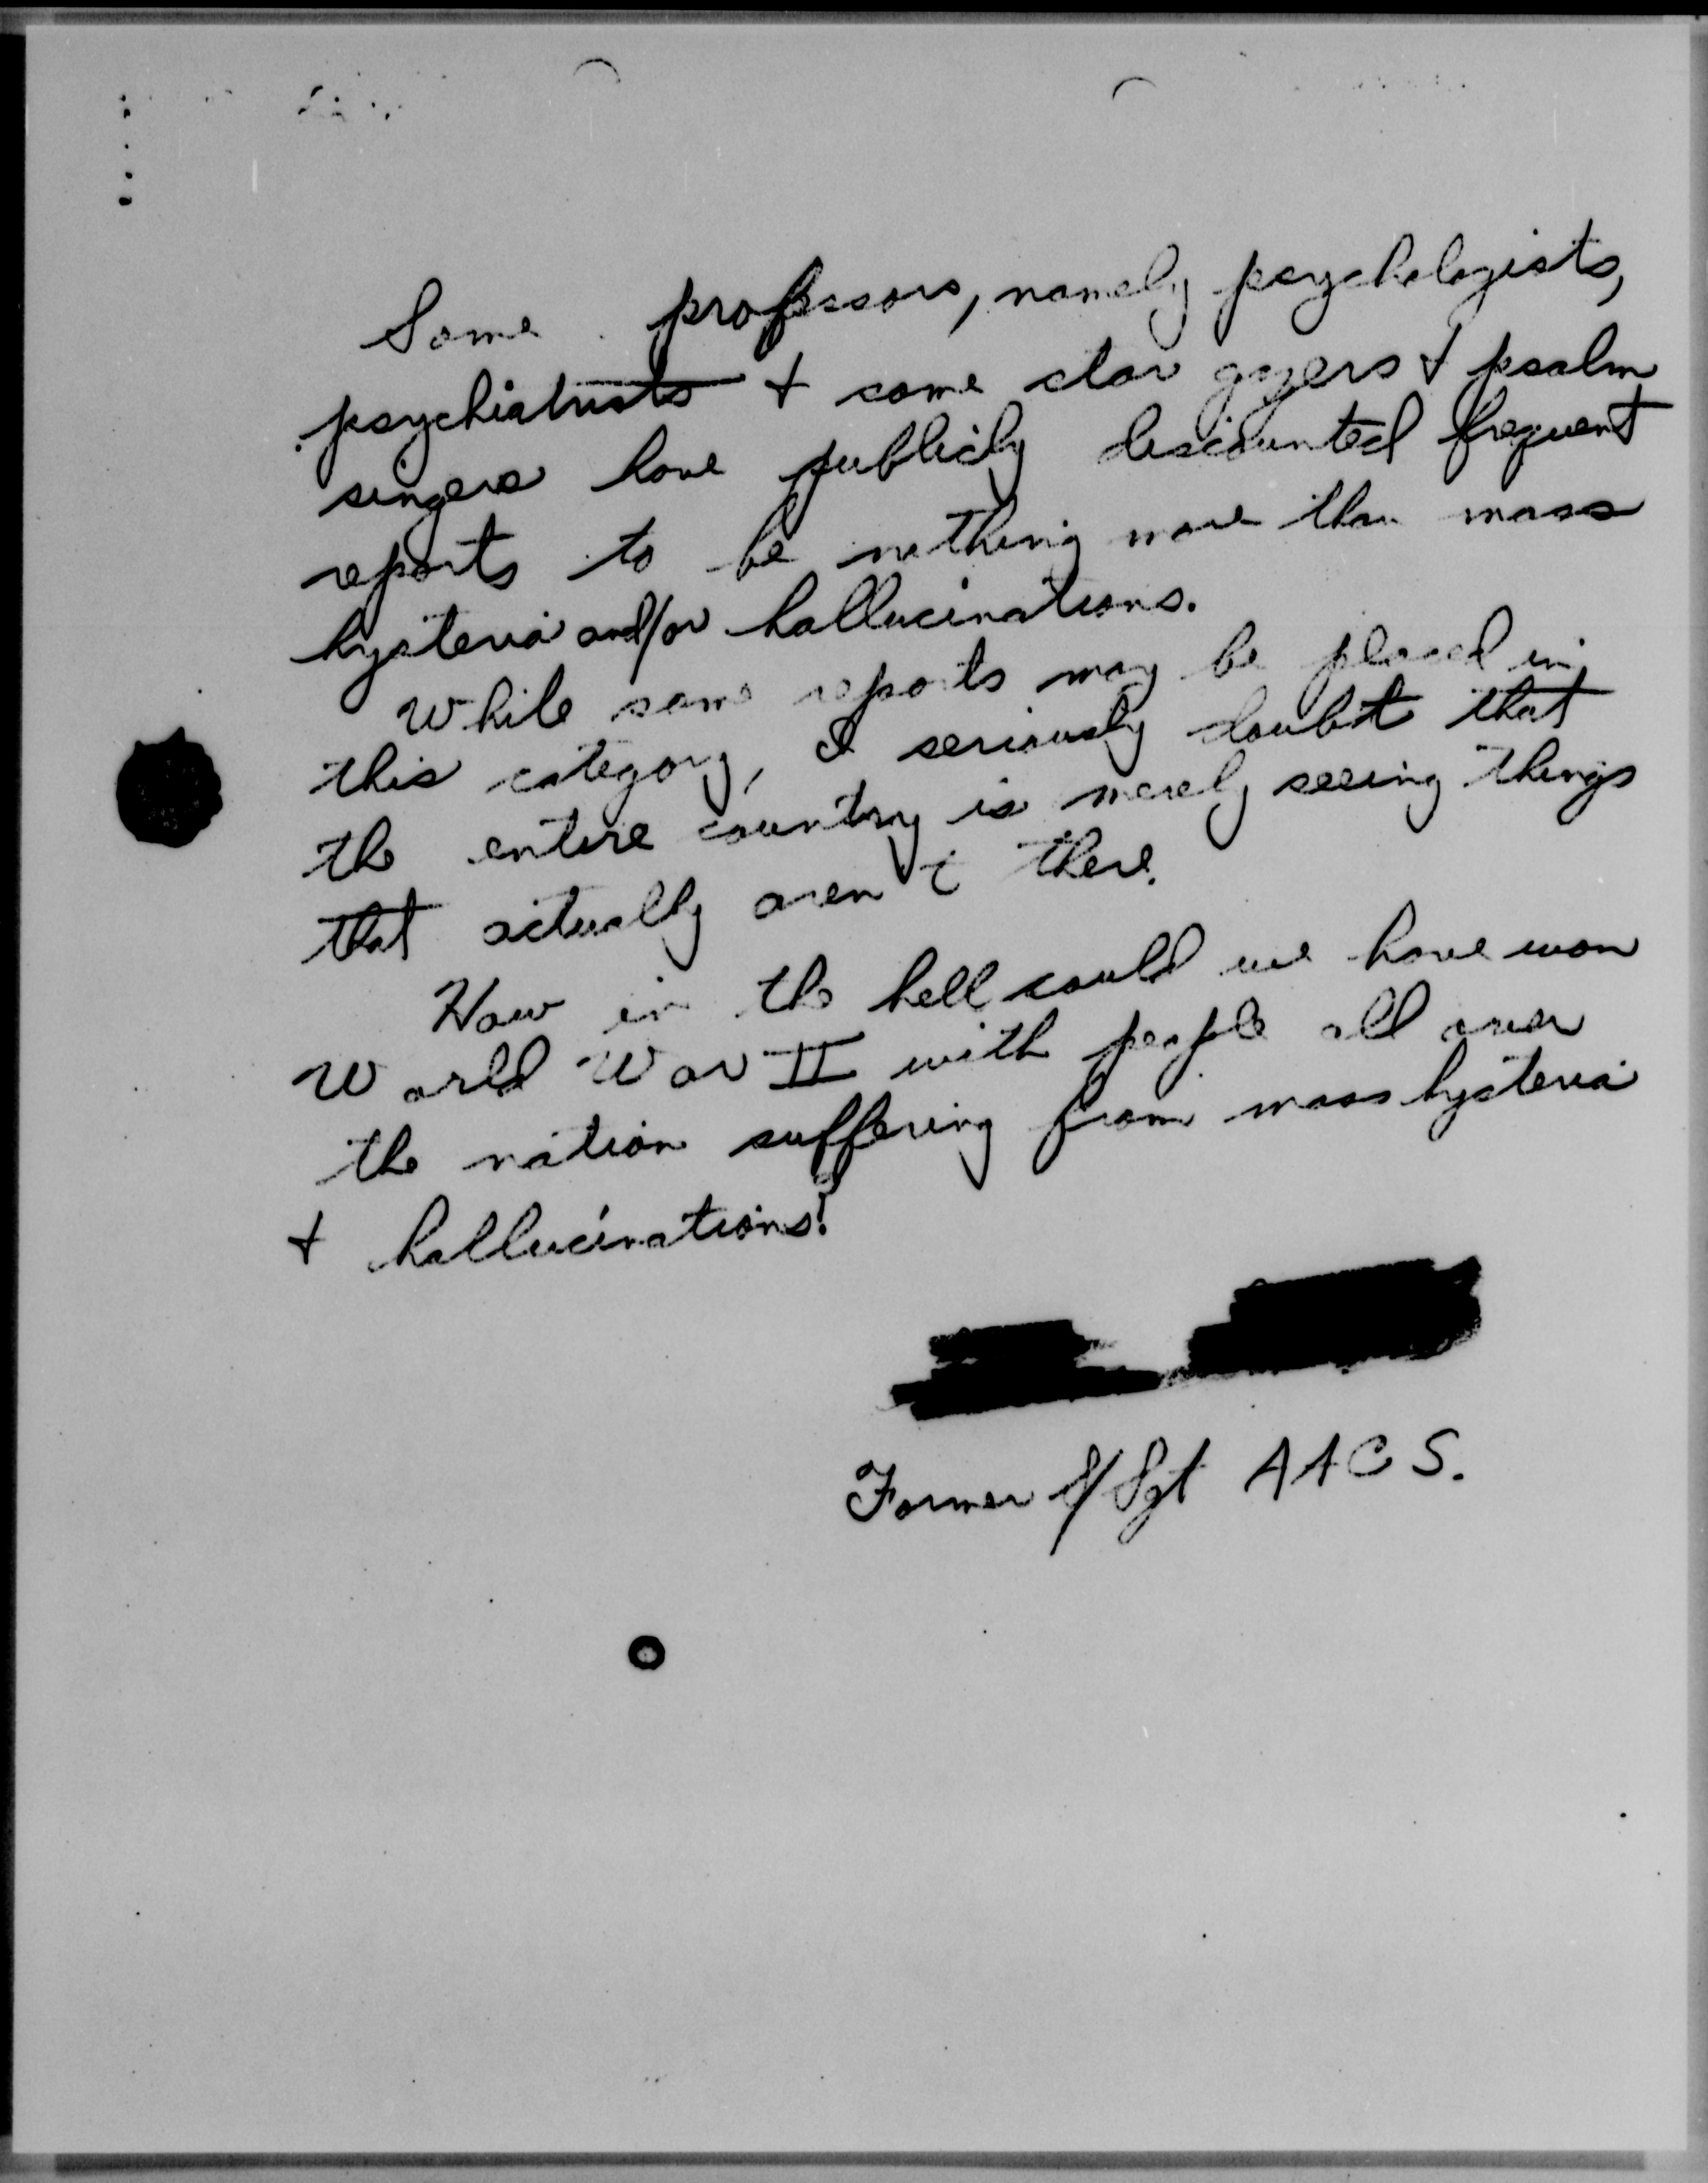 Some professors, namely psychologists,
psychiatrists + some star gazers + psalm
singers have publicly discounted frequent
reports to be nothing more than mass
hysteria and/or hallucinations.
While some reports may be placed in
this category, I seriously doubt that
the entire country is merely seeing things
that actually aren't there.
How in the hell could we have won
World War II with people all over
the nation suffering from mass hysteria
+ hallucinations?
Former S/Sgt AACS.